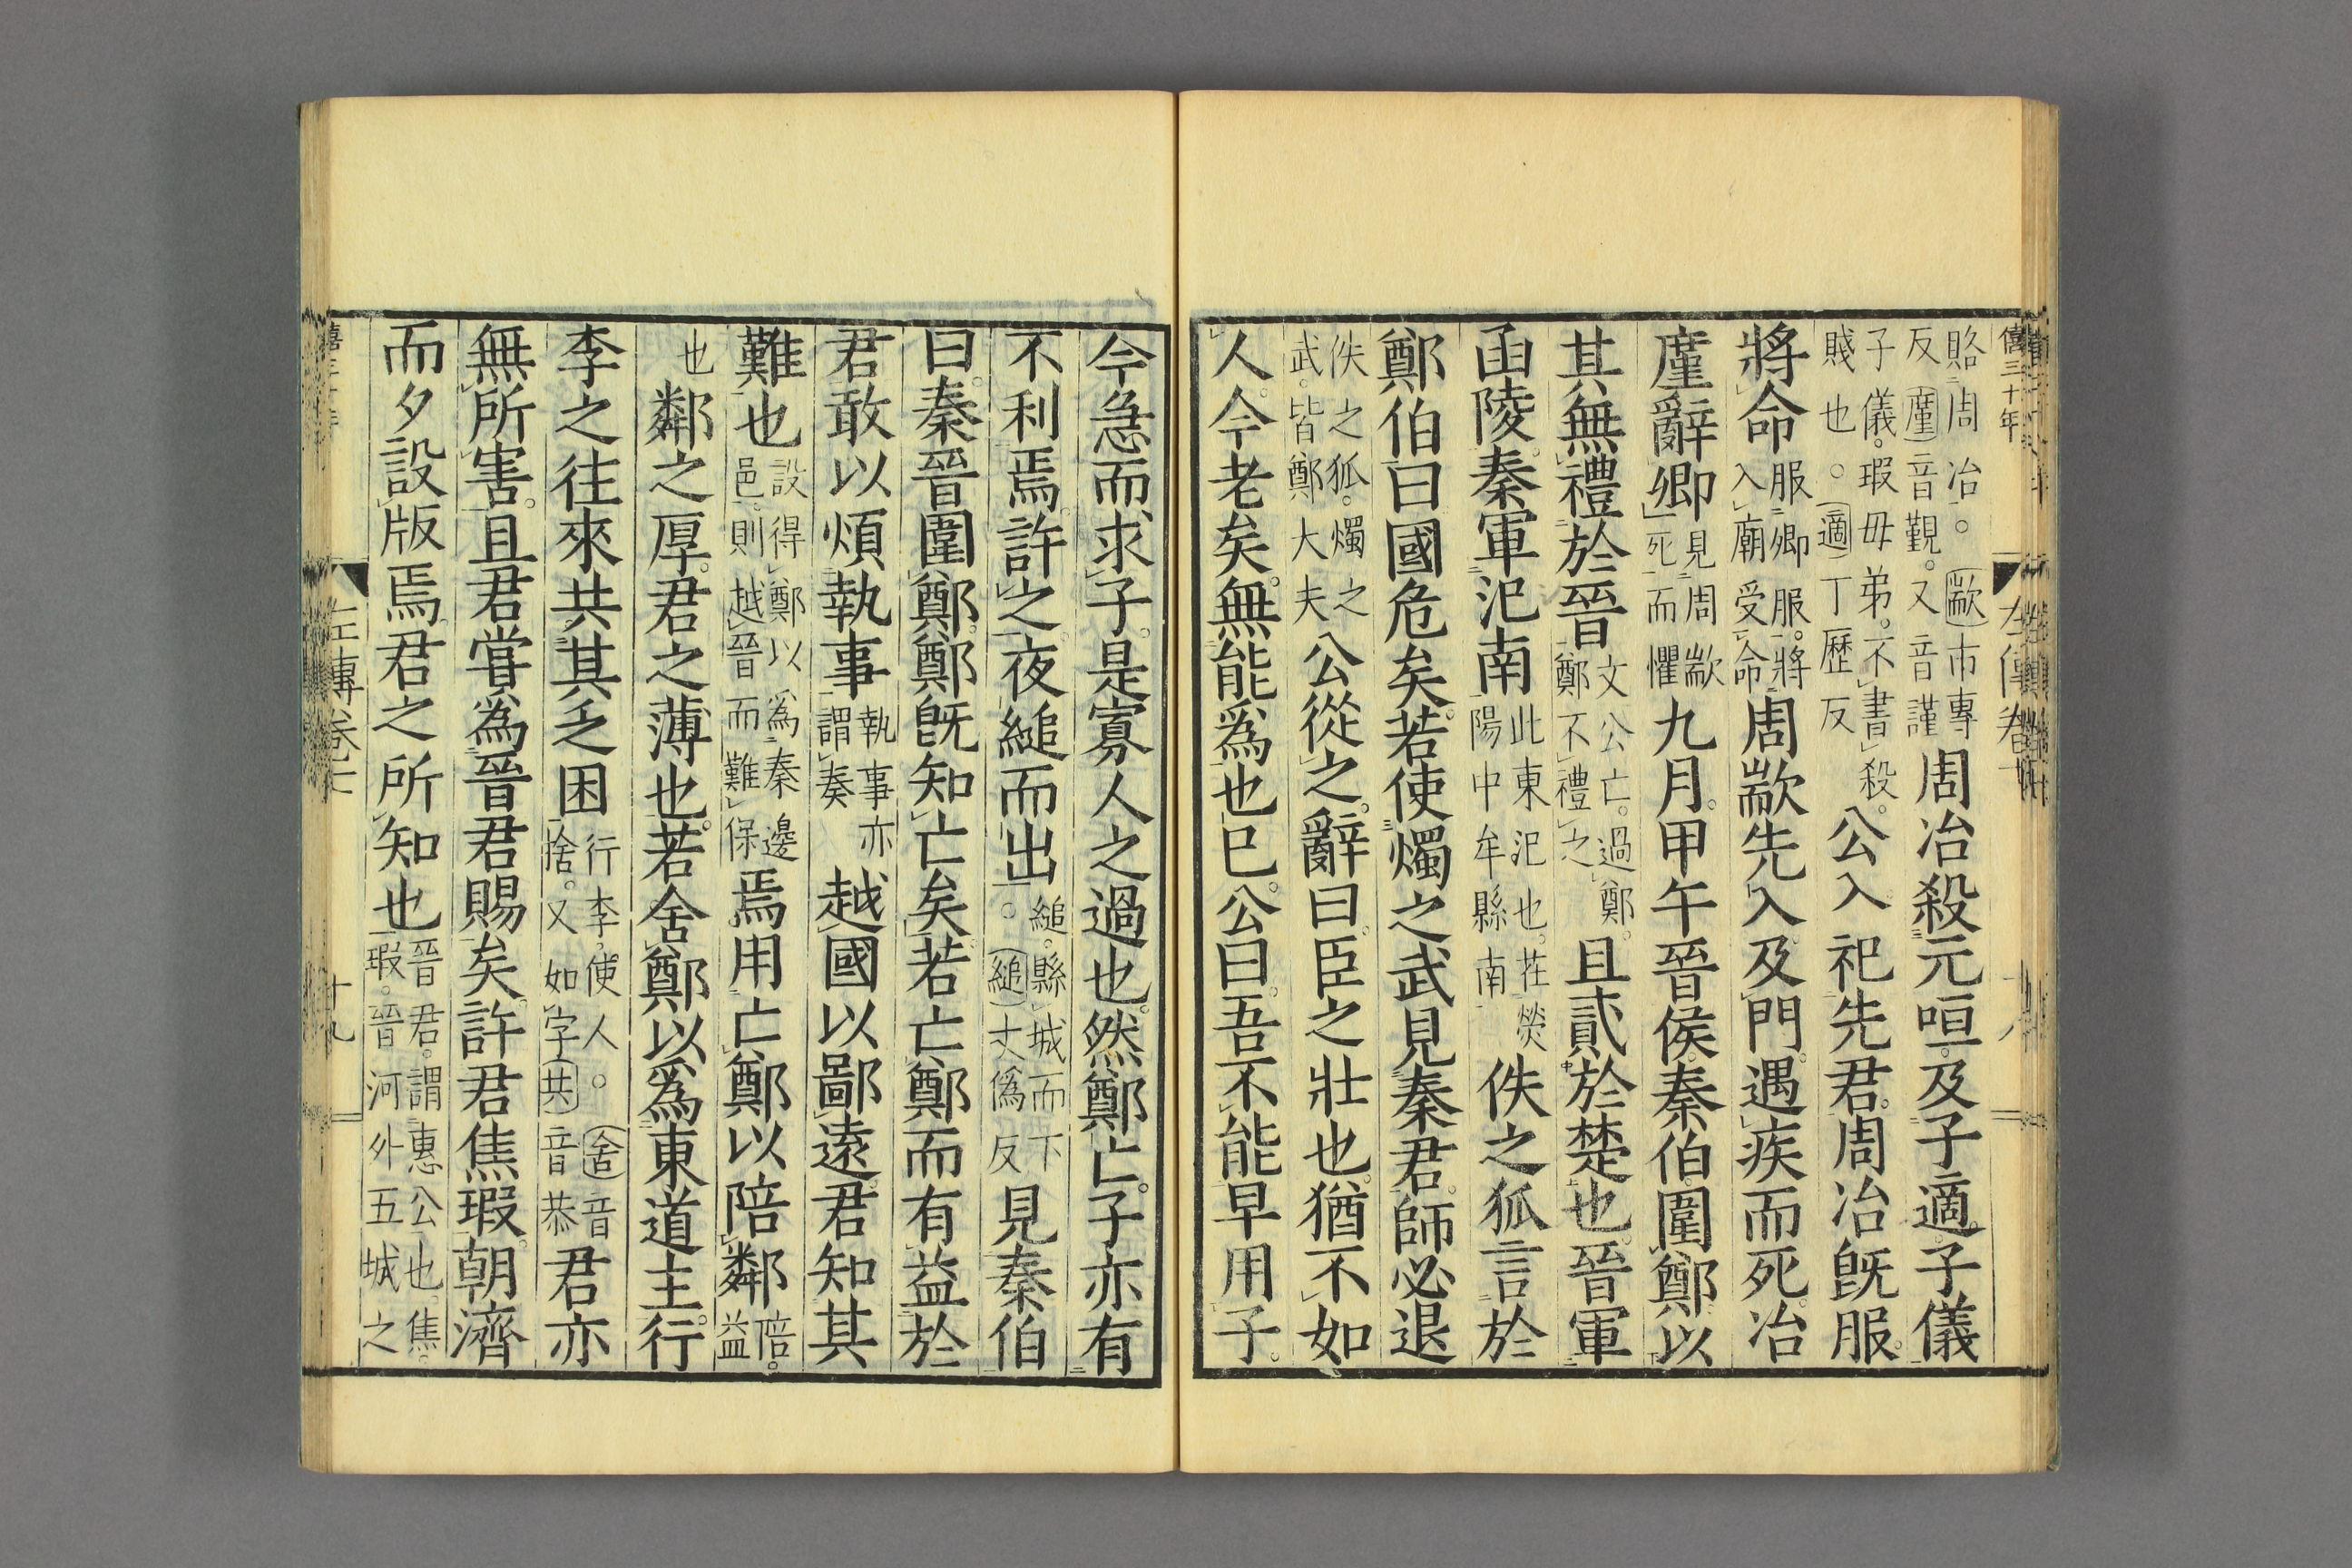 僖三十年
左傳卷七
十八
賂周冶。歂市專反廑音覲。又音謹周冶殺元咺。及子適。子儀
子儀。瑕毋弟。不書殺。賤也。適丁歷反公入。祀先君。周冶既服。
將命服卿服。將入廟受命周歂先入。及門。遇疾而死。冶
廑辭卿見周歂死而懼九月。甲午晉侯。秦伯。圍鄭。以
其無禮於晉文公亡。過鄭。鄭不禮之且貳於楚也。晉軍
函陵。秦軍氾南此東氾也。在熒陽中牟縣南佚之狐言於
鄭伯曰國危矣。若使燭之武見秦君。師必退
佚之狐。燭之武。皆鄭大夫公從之。辭曰。臣之壯也。猶不如
人。今老矣。無能爲也巳。公曰。吾不能早用子。
今急而求子。是寡人之過也。然鄭亡。子亦有
不利焉。許之。夜縋而出縋。縣城而下。縋丈僞反見秦伯
曰。秦晉圍鄭。鄭既知亡矣。若亡鄭而有益於
君敢以煩執事執事亦謂秦越國以鄙遠。君知其
難也設得鄭以爲秦邊邑。則越晉而難保焉用亡鄭以陪鄰陪。益
也鄰之厚。君之薄也。若舍鄭以爲東道主。行
李之往來共其乏困行李。使人。舍音捨。又如字共音恭君亦
無所害。且君嘗爲晉君賜矣。許君焦瑕。朝濟
而夕設版焉。君之所知也晉君。謂惠公也。焦。瑕。晉河外五城之
左傳卷七
十九